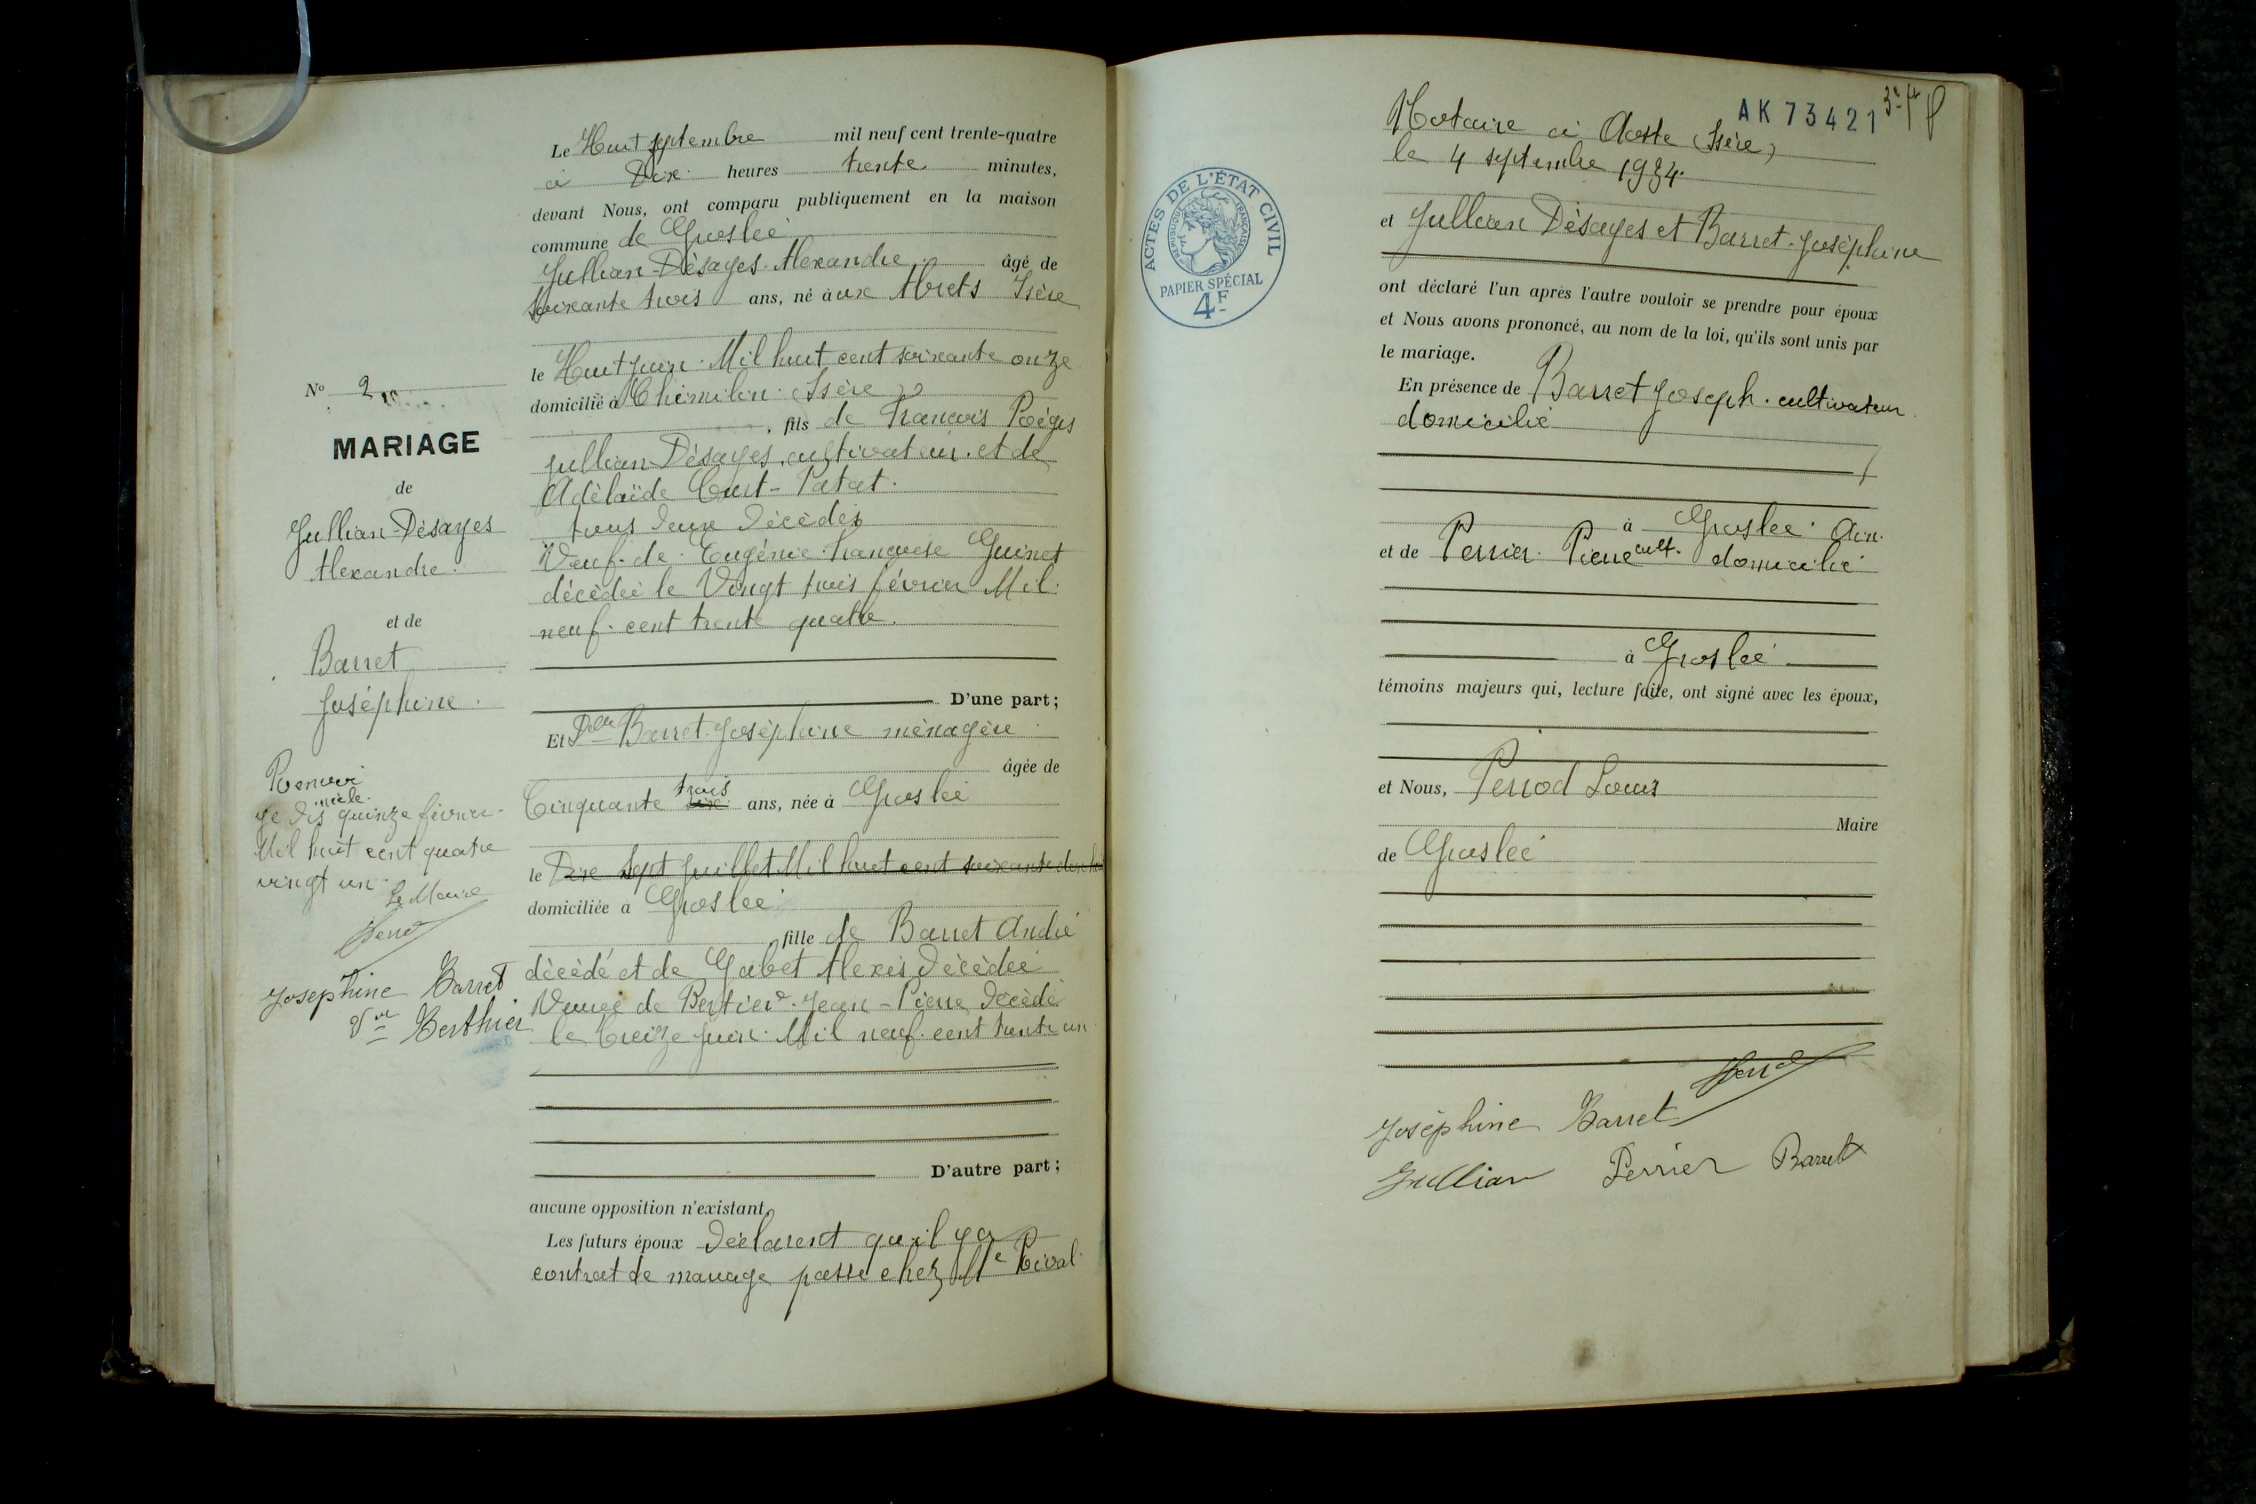 Le Huit septembre mil neuf cent trente-quatre
à Dix heures trente minutes,
devant Nous, ont comparu publiquement en la maison
commune de Groslée
Jullian-Désayes Alexandre âgé de
soixante trois ans, né à aux Abrets Isère
le Huit juin Mil huit cent soixante onze
domicilié à Chimilin (Isère)
, fils de François Régis
Jullian Désayes, cultivateur et de
Adélaïde Cuet-Patat.
tous deux décédés
Veuf de Eugénie Françoise Guinet
décédée le Vingt trois février Mil
neuf cent trente quatre.
D'une part;
Nº 2
MARIAGE
de
Jullian-Désayes
Alexandre.
et de
Barret
Joséphine.
Renvoi
je dis quinze février
Mil huit cent quatre
vingt un
Le Maire
Joséphine Barret
Vve Berthier
Et Barret Joséphine ménagère
âgée de
trois
Cinquante six ans, née à Groslée
le Dix sept juillet Mil huit cent soixante dix huit
domiciliée à Groslée
fille de Barret André
décédé et de Gabet Alexis décédée
Veuve de Bertier Jean-Pierre, décédé
le treize juin Mil neuf cent trente un
D'autre part;
aucune opposition n'existant,
Les futurs époux déclarent qu'il y a
contrat de mariage passé chez Me Rival
AK 73421
Notaire à Aoste (Isère)
le 4 septembre 1934.
ACTES DE L'ÉTAT CIVIL
RÉPUBLIQUE FRANÇAISE
PAPIER SPÉCIAL
4F
et Jullian Désayes et Barret Joséphine
ont déclaré l'un après l'autre vouloir se prendre pour époux
et Nous avons prononcé, au nom de la loi, qu'ils sont unis par
le mariage.
En présence de Barret Joseph. cultivateur
domicilié
à Groslée. Ain.
et de Perrier Pierre cult. domicilié
à Groslée
témoins majeurs qui, lecture faite, ont signé avec les époux,
et Nous, Perrod Louis
Maire
de Groslée
Perrod
Joséphine Barret
Jullian Perrier Barret